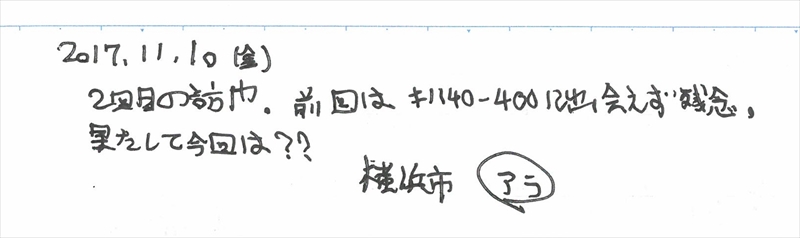 2017.11.10(金)
2回目の訪問。前回はキハ40-400に出会えず残念。
果たして今回は??
横浜市 アラ